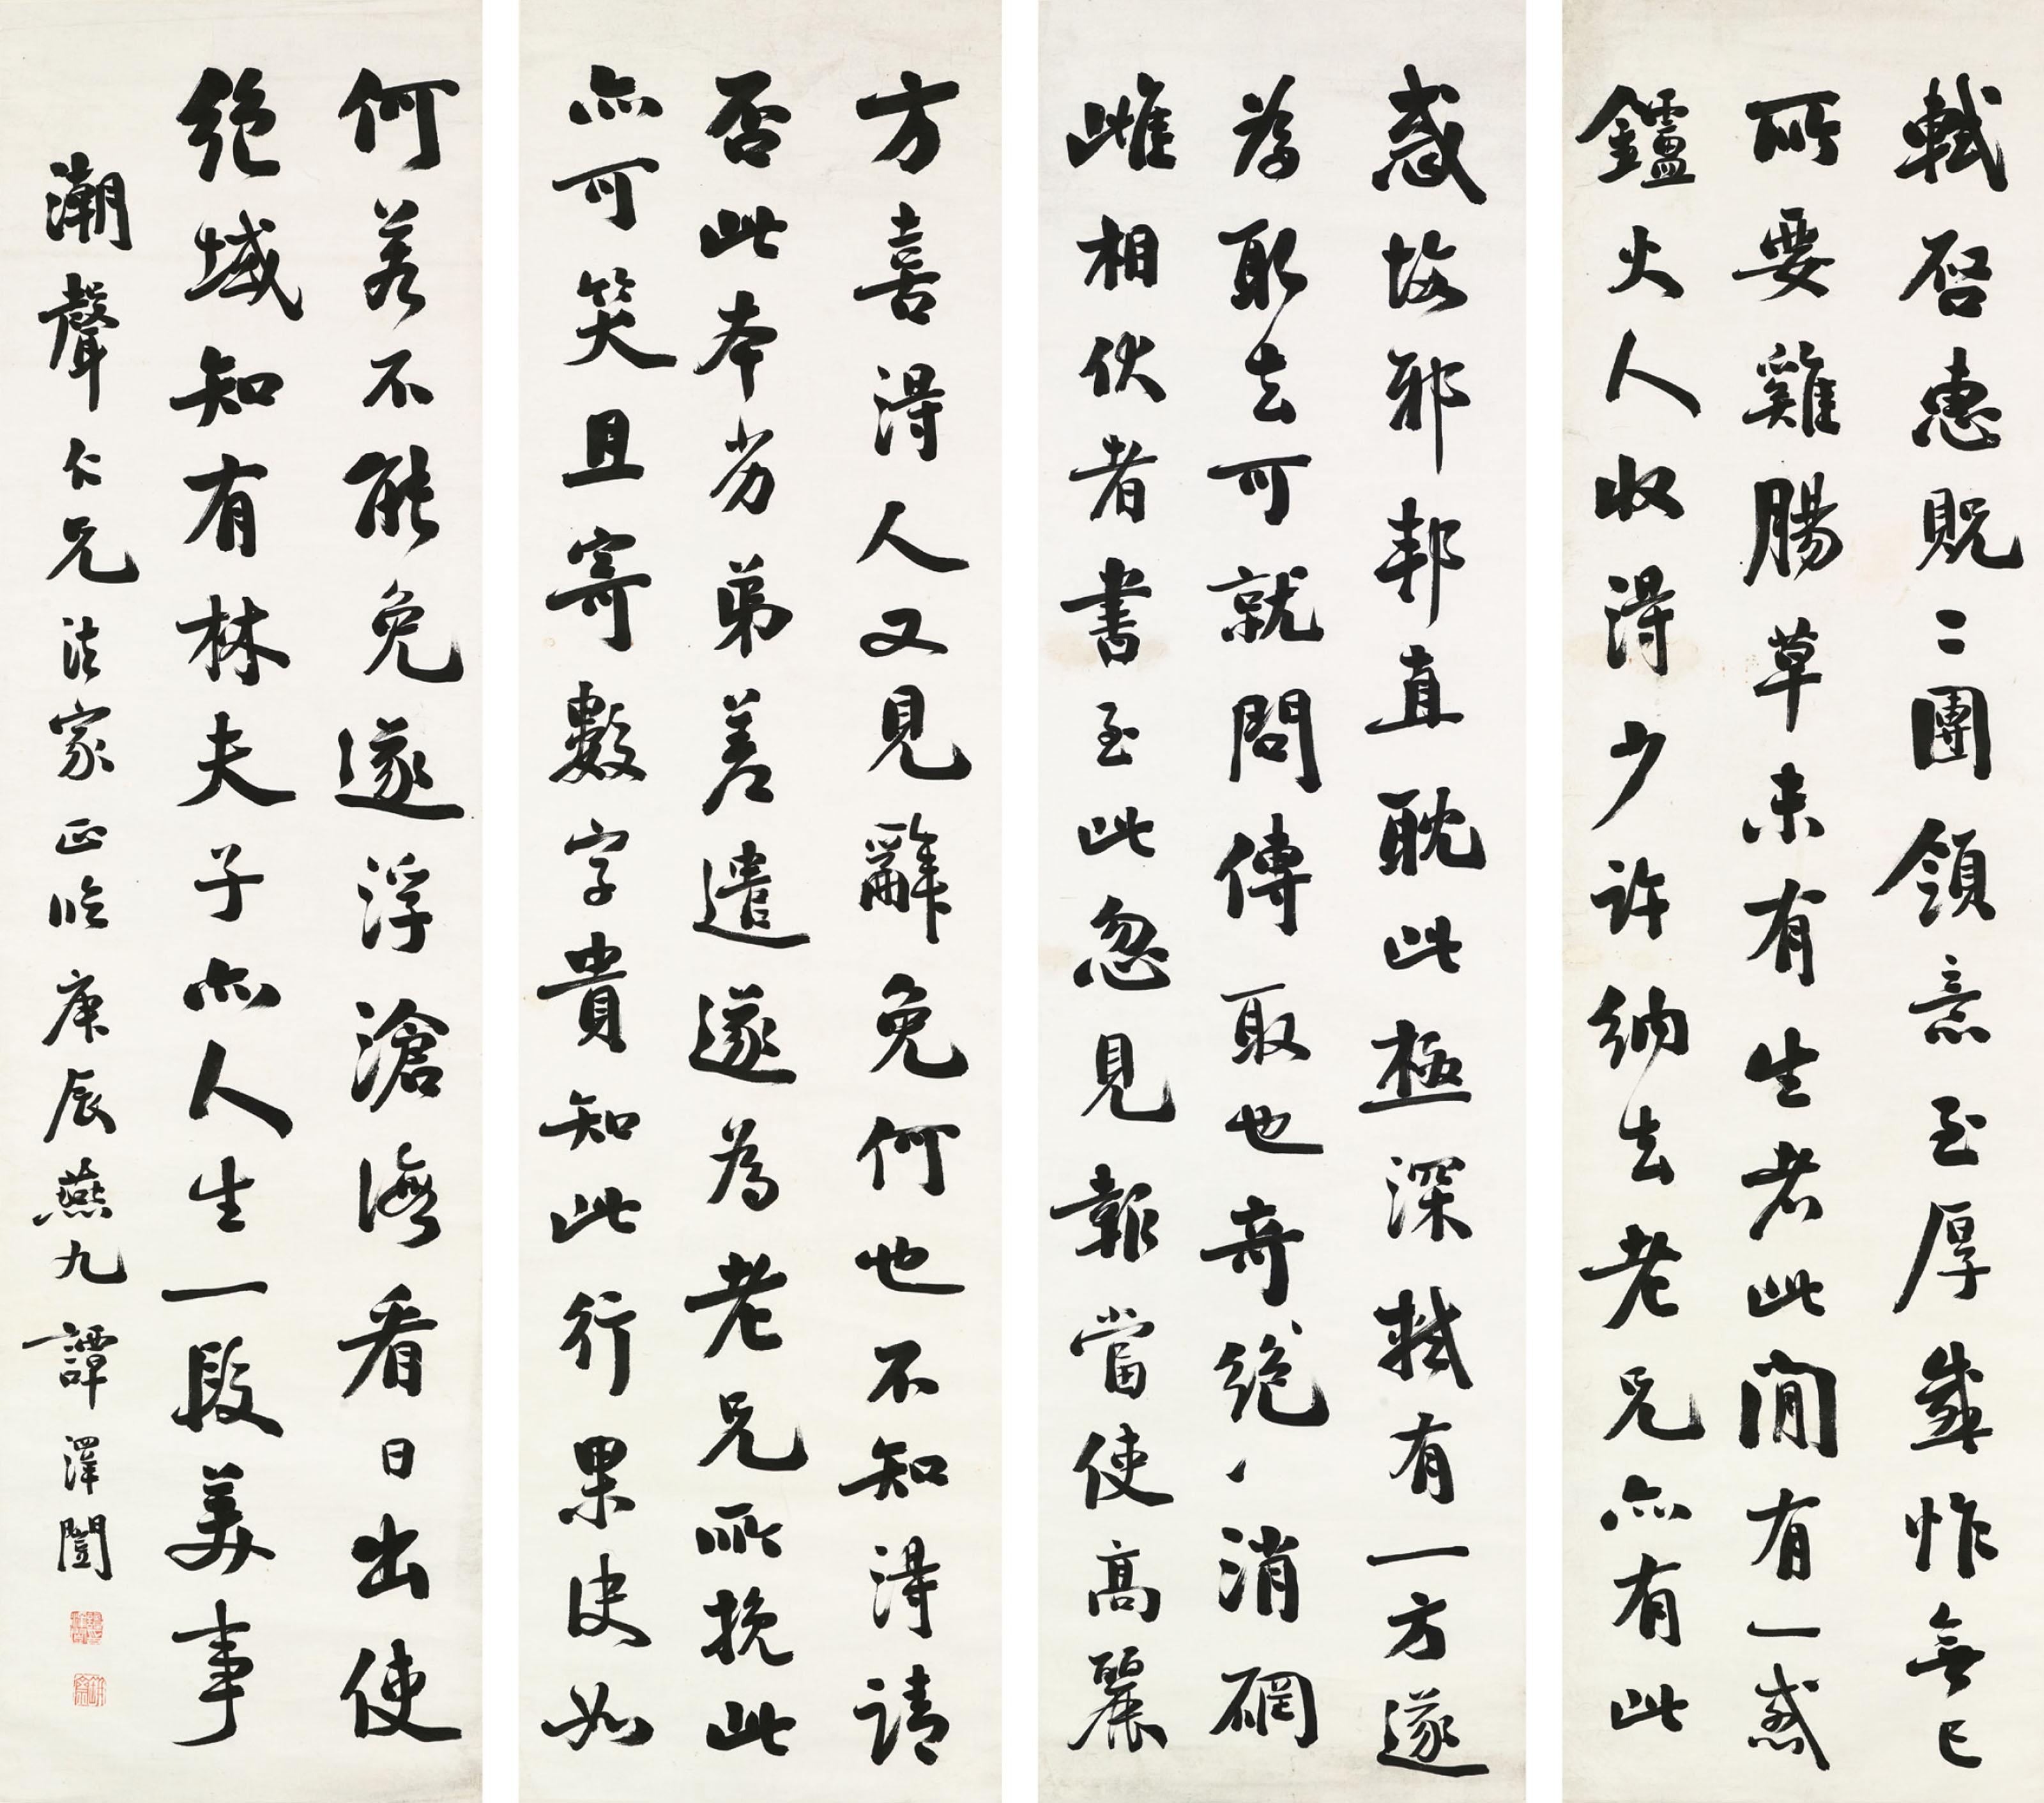 軾啓惠貺二團領意至厚感怍無已
所要雞腸草未有生者此間有一惑
鑪火人收得少許納去老兄亦有此
惑悔邪邦直耽此極深軾有一方遂
為取去可就問傳取也奇絕ヽ消硇
雌相伏者書至此忽見報當使高麗
方喜得人又見辭免何也不知得請
否此本劣弟差遣遂為老兄所挽此
亦可笑且寄數字貴知此行果決如
何若不能免遂浮滄海看日出使
絕域知有林夫子亦人生一段美事
潮聲仁兄法家正臨庚辰燕九譚澤闓